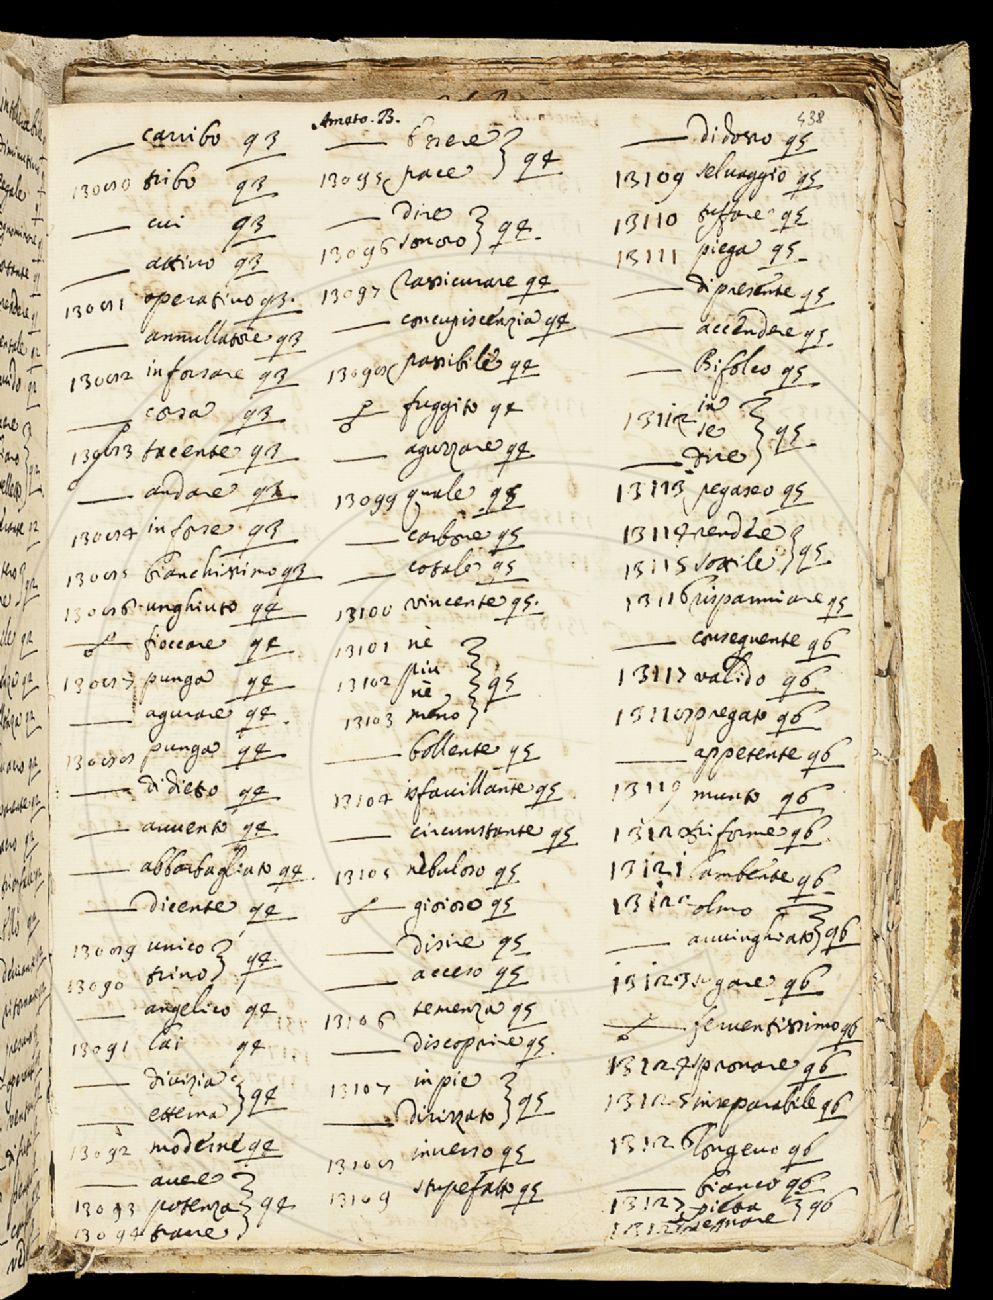 Amato. B.
538
— carribo 93
13080 tribo 93
— cui 93
— attivo 93
13081 operativo 93.
— annullatore 93
13082 inforsare 93
— corsa 93
13083 tacente 93
— andare 93
13084 inforse 93
13085 bianchissimo 93
13086 unghiuto 94
fioccare 94
13087 punga 94
— agurare 94.
13088 punga 94
— di dieto 94
— avvento 94
— abbarbagliato 94.
— dicente 94
13089 unico } 94
13090 trino
— angelico 94
13091 lai 94
— divizia } 94
— etterna
13092 moderne 94
— avere } 94
13093 potenza
13094 trarre
— bere } 94
13095 pace
— dire } 94.
13096 sonoro
13097 rassicurare 94
— concupiscenzia 94
13098 passibile 94
fuggito 94
— aguzzare 94
13099 quale 95
— carbone 95
— cotale 95
13100 vincente 95.
13101 nè } 95
13102 più
nè
13103 meno
— bollente 95
13104 isfavillante 95.
— circunstante 95
13105 nebuloso 95
gioioso 95
— disire 95
— acceso 95
13106 temenza 95
— discoprire 95.
13107 in pie } 95
— dirizzato
13108 inverso 95
13109 stupefatto 95
— di dosso 95
13109 selvaggio 95
13110 tuffare 95
13111 piega 95.
— di presente 95
— accendere 95.
— Bifolco 95
13112 in } 95.
se
— dire
13113 pegaseo 95
13114 rendere } 95
13115 sottile
13116 risparmiare 95
— conseguente 96
13117 valido 96
13118 pregato 96
— appetente 96
13119 munto 96
13120 triforme 96.
13121 lambente 96
13122 olmo } 96
— avvinghiato
13123 sugare 96
ferventissimo 96
13124 spronare 96
13125 inseparabile 96
13126 longevo 96
— bianco 96
13127 pietra } 96
13128 segnare